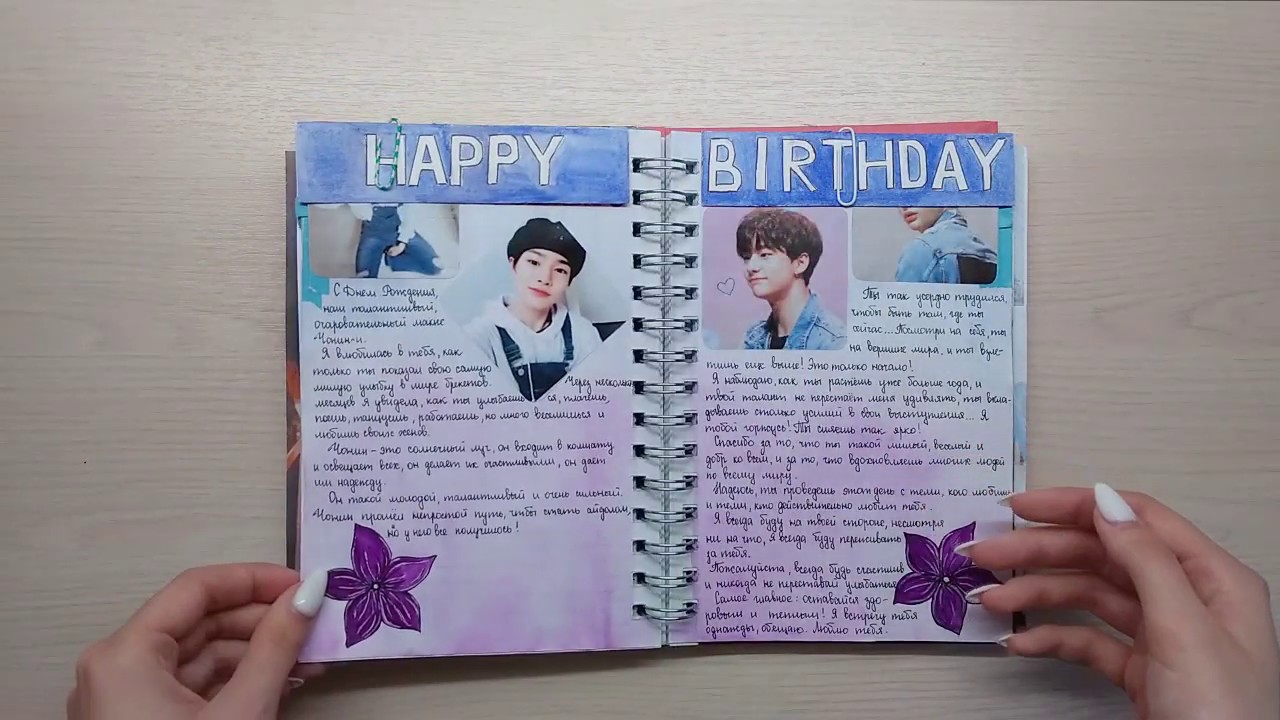 HAPPY
BIRTHDAY
С Днём Рождения,
наш талантливый,
очаровательный макнэ
Чонин-и.
Я влюбилась в тебя, как
только ты показал свою самую
милую улыбку в мире брекетов. Через несколько
месяцев я увидела, как ты улыбаешься, плачешь,
поёшь, танцуешь, работаешь, но много веселишься и
любишь своих хёнов.
Чонин - это солнечный луч, он входит в комнату
и освещает всех, он делает их счастливыми, он даёт
им надежду.
Он такой молодой, талантливый и очень сильный.
Чонин прошёл непростой путь, чтобы стать айдолом,
но у него все получилось!
Ты так усердно трудился,
чтобы быть там, где ты
сейчас... Посмотри на себя, ты
на вершине мира, и ты взле-
тишь еще выше! Это только начало!
Я наблюдаю, как ты растёшь уже больше года, и
твой талант не перестаёт меня удивлять, ты вкла-
дываешь столько усилий в свои выступления... Я
тобой горжусь! Ты сияешь так ярко!
Спасибо за то, что ты такой милый, веселый и
добр ко всем, и за то, что вдохновляешь многих людей
по всему миру.
Надеюсь, ты проведешь этот день с теми, кого любишь
и теми, кто действительно любит тебя.
Я всегда буду на твоей стороне, несмотря
ни на что, я всегда буду переживать
за тебя.
Пожалуйста, всегда будь счастлив
и никогда не переставай улыбаться
Самое главное: оставайся здо-
ровым и теплым! Я встречу тебя
однажды, обещаю. Люблю тебя.